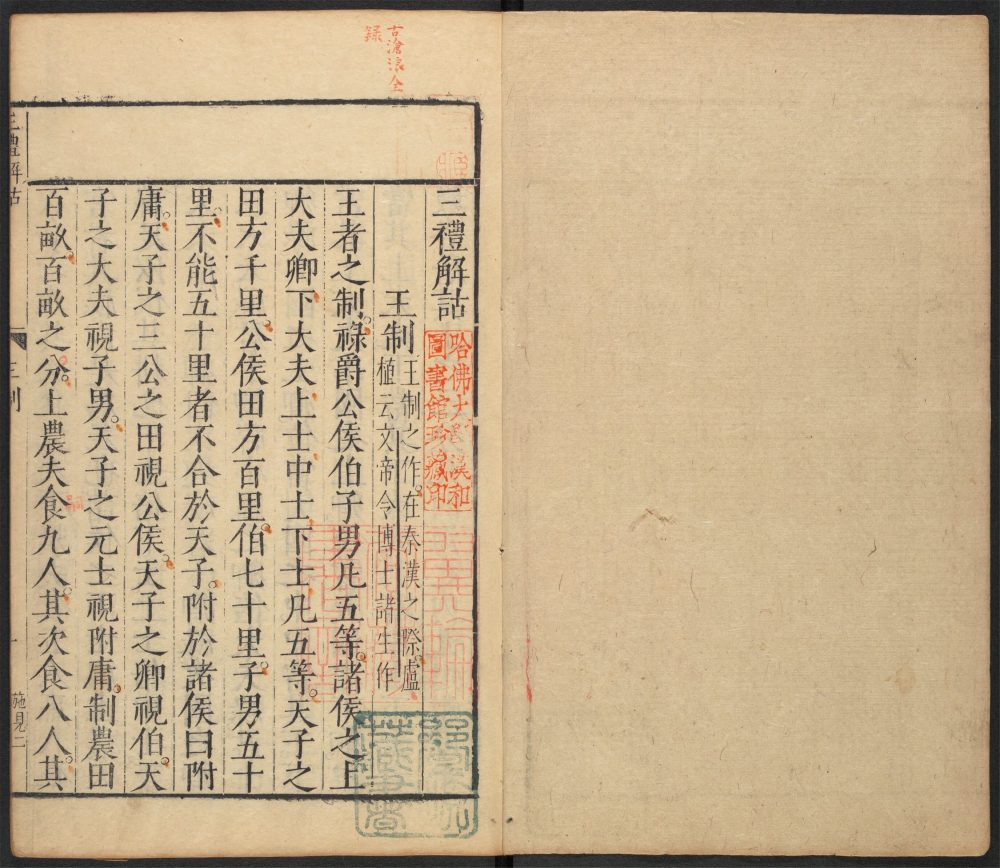 古滄浪全
錄
三禮解詁
哈佛大學漢和
圖書館珍藏印
王制
王制之作在秦漢之際盧
植云文帝令博士諸生作
王者之制祿爵公侯伯子男凡五等諸侯之上
大夫卿下大夫上士中士下士凡五等天子之
田方千里公侯田方百里伯七十里子男五十
里不能五十里者不合於天子附於諸侯曰附
庸天子之三公之田視公侯天子之卿視伯天
子之大夫視子男天子之元士視附庸制農田
百畝百畝之分上農夫食九人其次食八人其
三禮解詁
王制
一
施見二